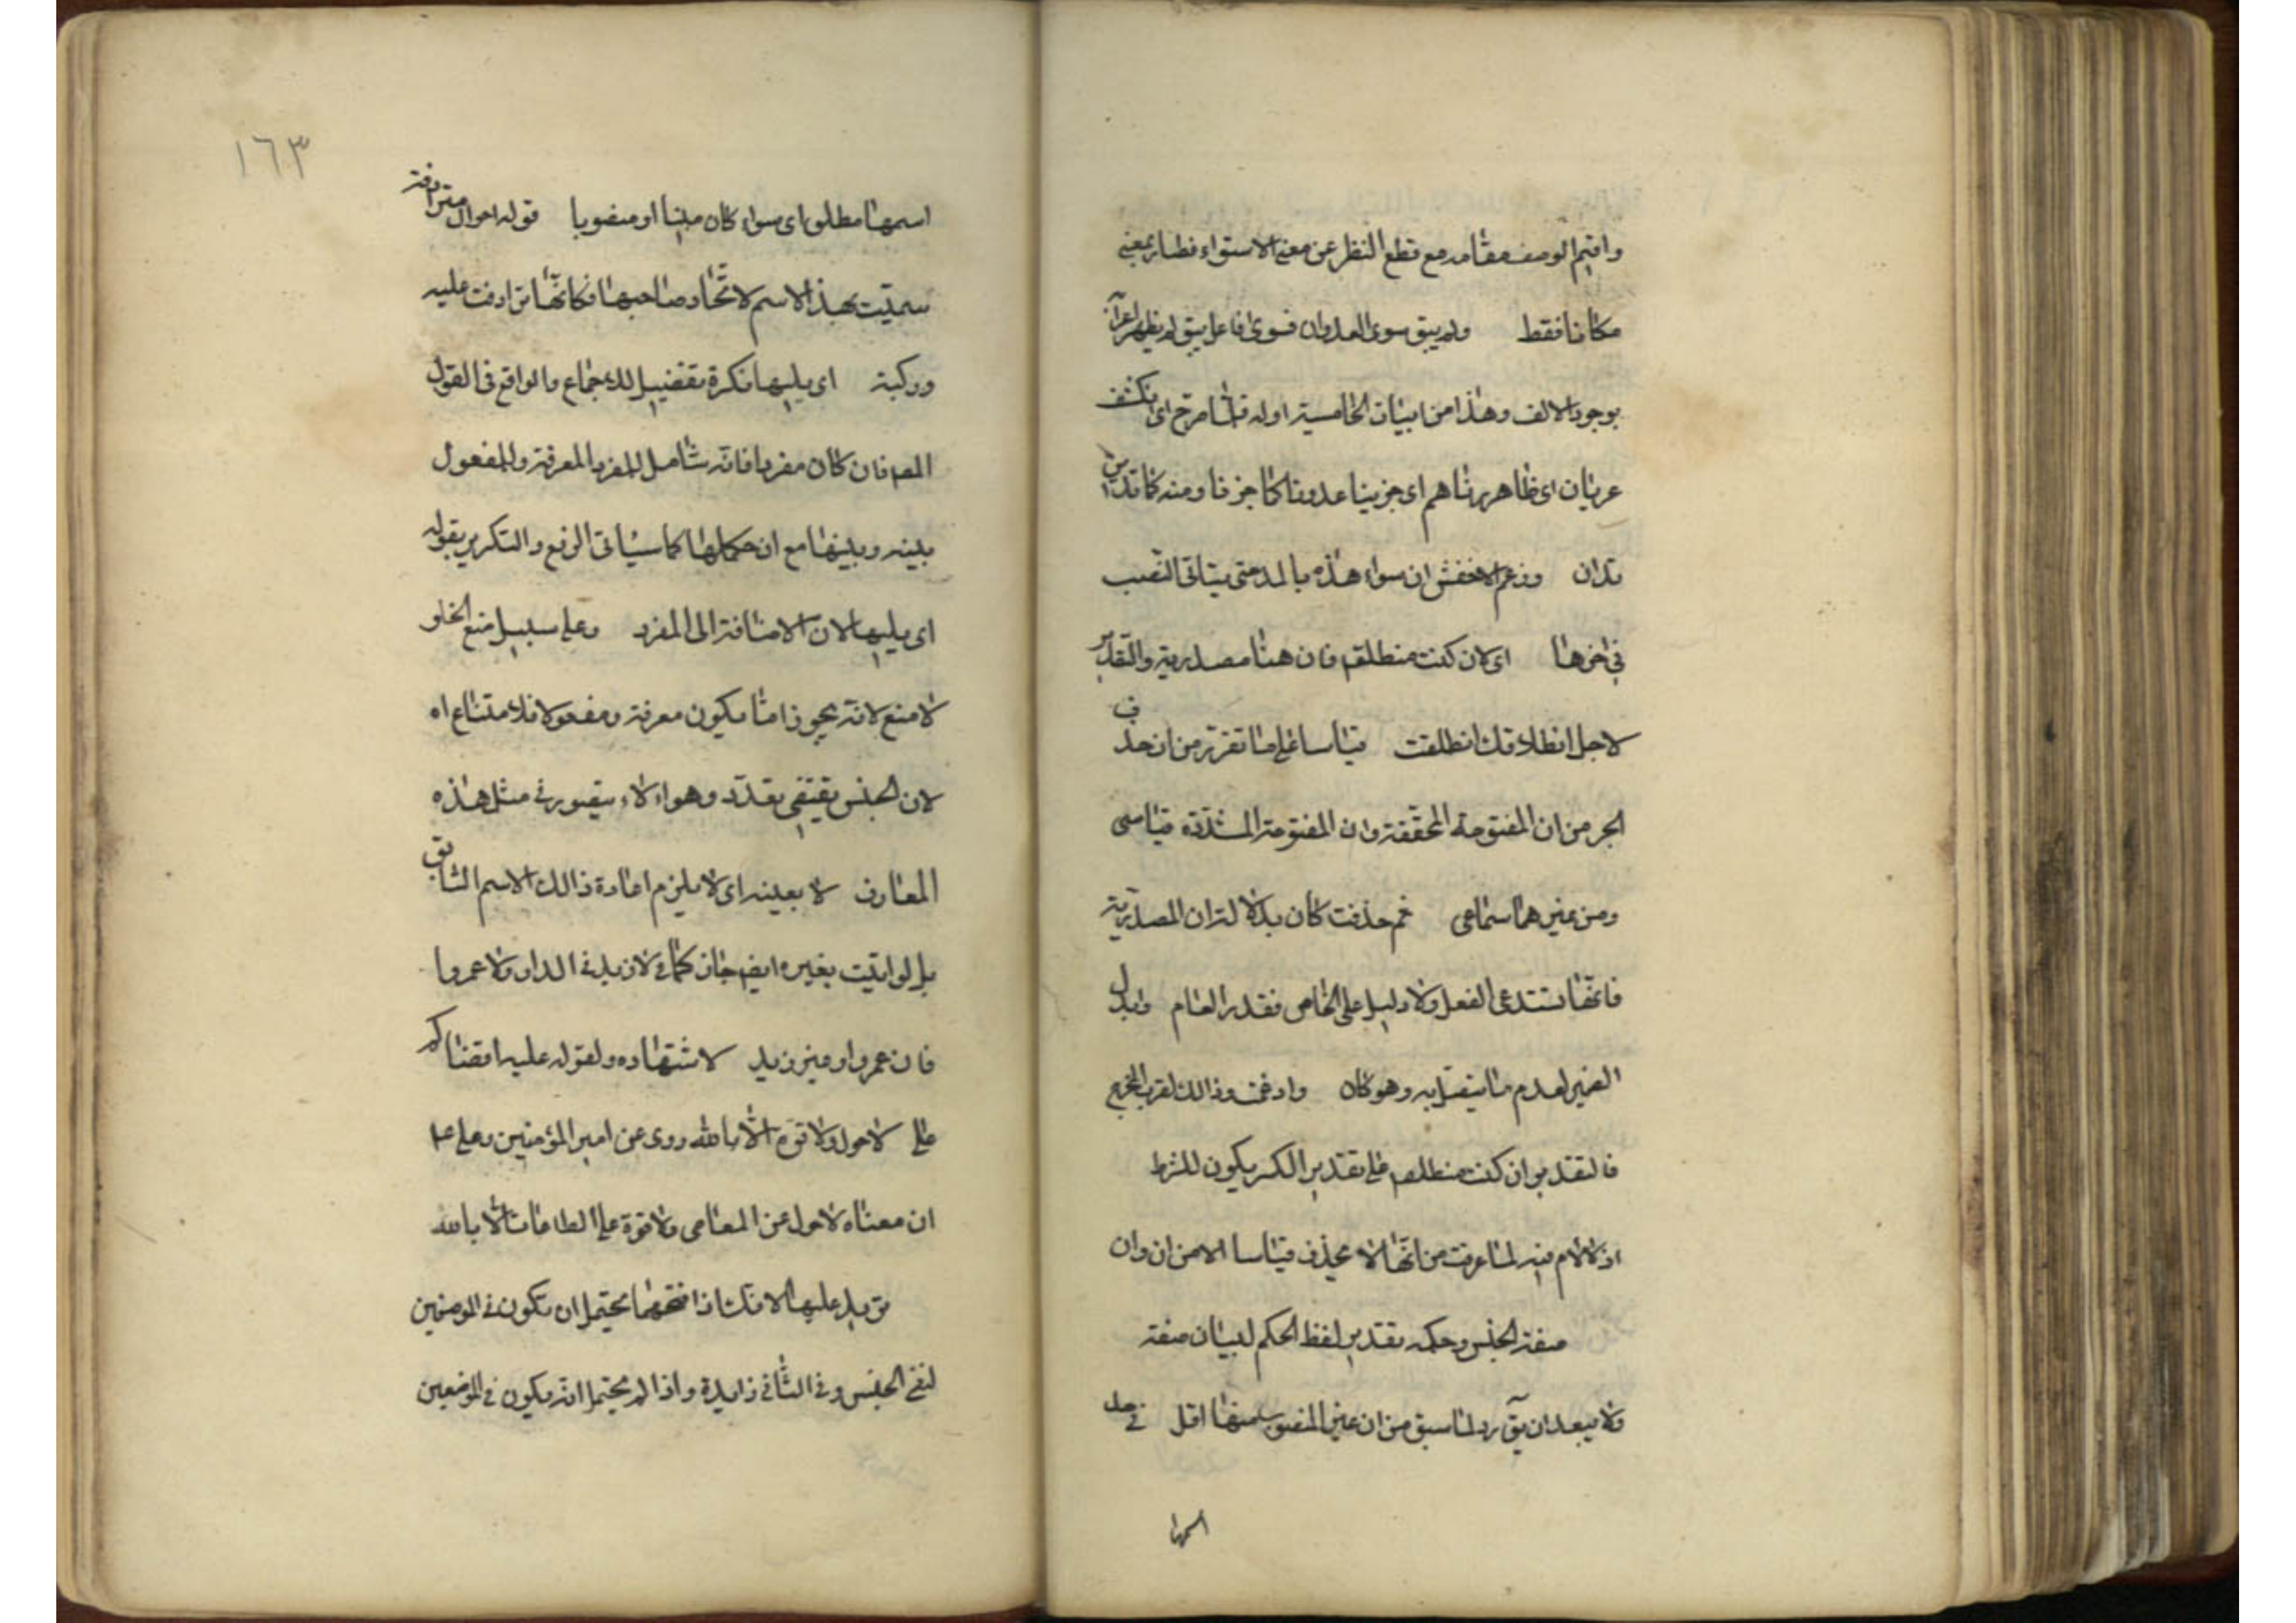 واقيم الوصف مقامه مع قطع النظر عن معنى الاستواء فصار بمعنى
مكانا فقط ولم يبق سوى العدوان فسوى فاعل يبق لم يظهر اعرابه
بوجود الالف وهذا من ابيات الخامسية اوله فلما صرح اى انكشف
عريان اى ظاهر دناهم اى جزيناهم كما جزونا ومنه كما تدين
تدان وزعم الاخفش ان سواء هذه بالمد حتى يتاتى النصب
فى اخرها اى لان كنت منطلقا فان هنا مصدرية والتقدير
لاجل انطلاقك انطلقت قياسا على ما تقرر من ان حذف
الجر من ان المفتوحة المخففة وان المفتوحة المشددة قياسى
ومن غيرهما سماعى ثم حذفت كان بدلالة ان المصدرية
فانها تستدعى الفعل ولا دليل على الخاص فقدر العام وابدل
الضمير لعدم ما يتصل به وهو كان وادغمت وذالك لقرب المخرج
فالتقدير ان كنت منطلقا فعلى تقدير الكسر يكون للشرط
اذ لا لام فيه لما عرفت من انها لا يحذف قياسا الا من ان وان
صفة الجنس وحكمه بتقدير لفظ الحكم لبيان صفة
ولا يبعد ان يق رد لما سبق من ان غير المنصوب منها اقل فى حل
اسمها
١٦٣
اسمها مطلقا اى سواء كان مبنيا او منصوبا قوله احوال مترادفة
سميت بهذا الاسم لاتحاد صاحبها فكانها ترادفت عليه
وركبته اى يليها نكرة تفصيل للاجماع والواقع فى القول
المص فان كان مفردا فانه شامل للمفرد المعرفة وللمفعول
بينه وبينها مع ان حكمها كما سياتى الرفع والتكرير بقوله
اى يليها لان الاضافة الى المفرد وعلى سبيل منع الخلو
لا منع لانه يجوز اما يكون معرفة ومفعولا فلا امتناع اه
لان الجنس يقتضى تعدد وهو لا يتصور فى مثل هذه
المعارف لا بعينه اى لا يلزم اعادة ذالك الاسم السابق
بل لو اتيت بغيره ايض جاز كما فى لا زيد فى الدار ولا عمروا
فان عمروا غير زيد لاشتهاده ولقوله عليه اقضاكم
على لا حول ولا قوة الا بالله روى عن امير المؤمنين على ع
ان معناه لا حول عن المعاصى ولا قوة على الطاعات الا بالله
يزيد عليها لانك اذا فتحتهما يحتمل ان تكون فى الموضعين
لنفى الجنس وفى الثانى زايدة واذا لم يحتمل انه يكون فى الموضعين